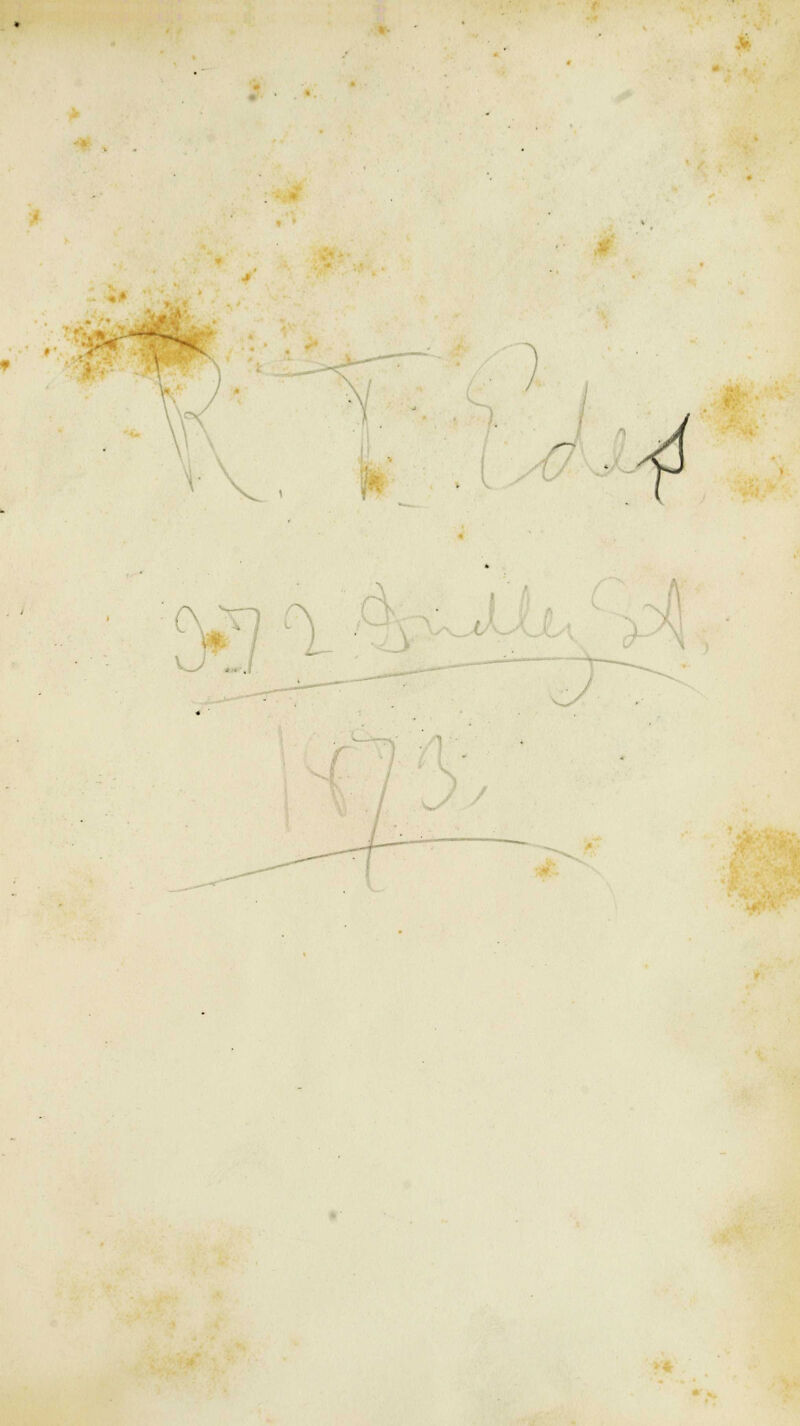 R. T. Edes
372 Dudley St,
1873,